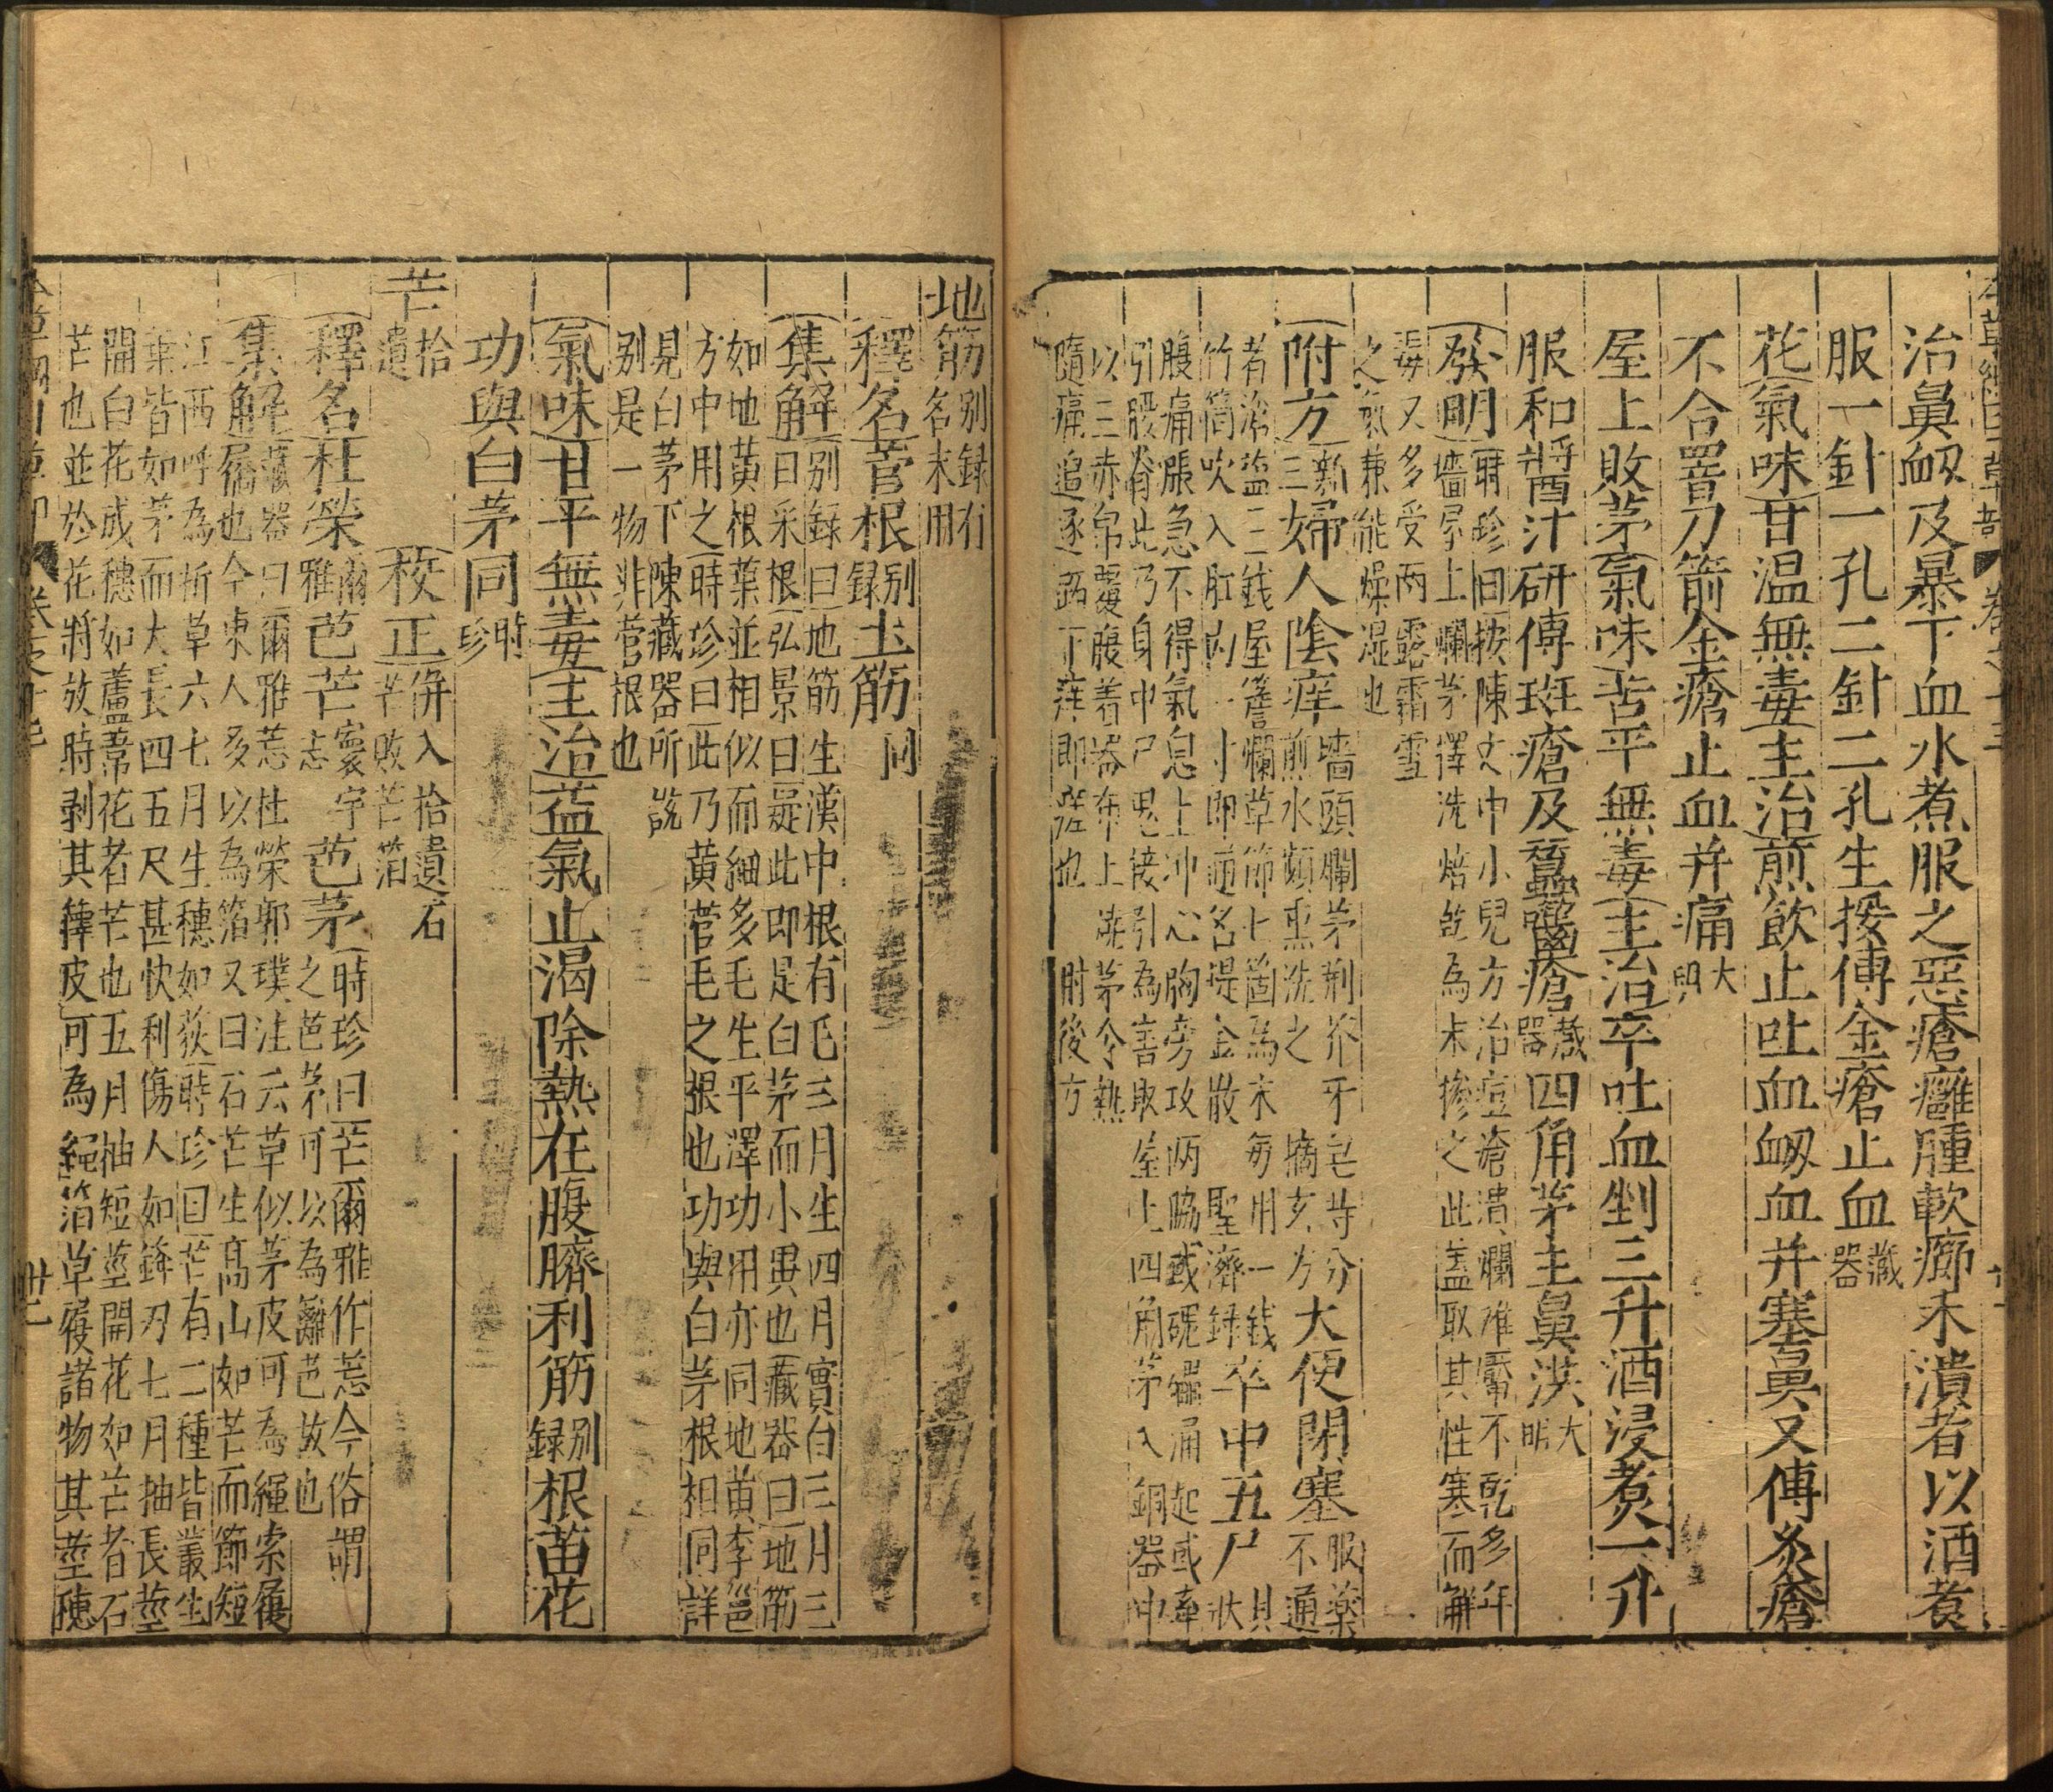 治鼻衂及暴下血水煮服之惡瘡癰腫軟癤未潰者以酒煮
服一針一孔二針二孔生挼傅金瘡止血藏器
花氣味甘温無毒主治煎飲止吐血衂血并塞鼻又傅灸瘡
不合署刀箭金瘡止血并痛大明
屋上敗茅氣味苦平無毒主治卒吐血剉三升酒浸煮一升
服和醬汁研傅斑瘡及蠶嚙瘡藏器四角茅主鼻洪大明
發明時珍曰按陳文中小兒方治痘瘡潰爛難靨不乾多年
墻屋上爛茅擇洗焙乾為末摻之此盖取其性寒而解
毒又多受雨露霜雪
之氣兼能燥湿也
附方新三婦人陰痒墻頭爛茅荆芥牙皂等分
煎水頻熏洗之 摘玄方大便閉塞服藥不通
者滄盐三錢屋簷爛草節七箇為末每用一錢
竹筒吹入肛内一寸即通名提金散 聖濟録卒中五尸其狀
腹痛脹急不得氣息上冲心胸旁攻两脇或磥𥕢涌起或牽
引腰脊此乃身中尸鬼接引為害取屋上四角茅入銅器中
以三赤帛覆腹着器布上燒茅令熱
隨痛追逐蹠下痒即瘥也 肘後方
地筋别録有名未用
釋名菅根别録土筋同
集解别録曰地筋生漢中根有毛三月生四月實白三月三
日采根弘景曰疑此即是白茅而小異也藏器曰地筋
如地黄根葉並相似而細多毛生平澤功用亦同地黄李邕
方中用之時珍曰此乃黄菅毛之根也功與白茅根相同詳
見白茅下陳藏器所説
别是一物非菅根也
氣味甘平無毒主治益氣止渴除熱在腹臍利筋别録根苗花
功與白茅同時珍
芒拾遺 校正併入拾遺石芒敗芒箔
釋名杜榮爾雅芭芒寰宇志芭茅時珍曰芒爾雅作莣今俗謂
之芭茅可以為籬芭故也
集解藏器曰爾雅莣杜榮郭璞注云草似茅皮可為繩索履
屩也今東人多以為箔又曰石芒生高山如芒而節短
江西呼為折草六七月生穗如荻時珍曰芒有二種皆叢生
葉皆如茅而大長四五尺甚快利傷人如鋒刃七月抽長莖
開白花成穗如蘆葦花者芒也五月抽短莖開花如芒者石
芒也並於花將放時剥其籜皮可為䋲箔草履諸物其莖穗